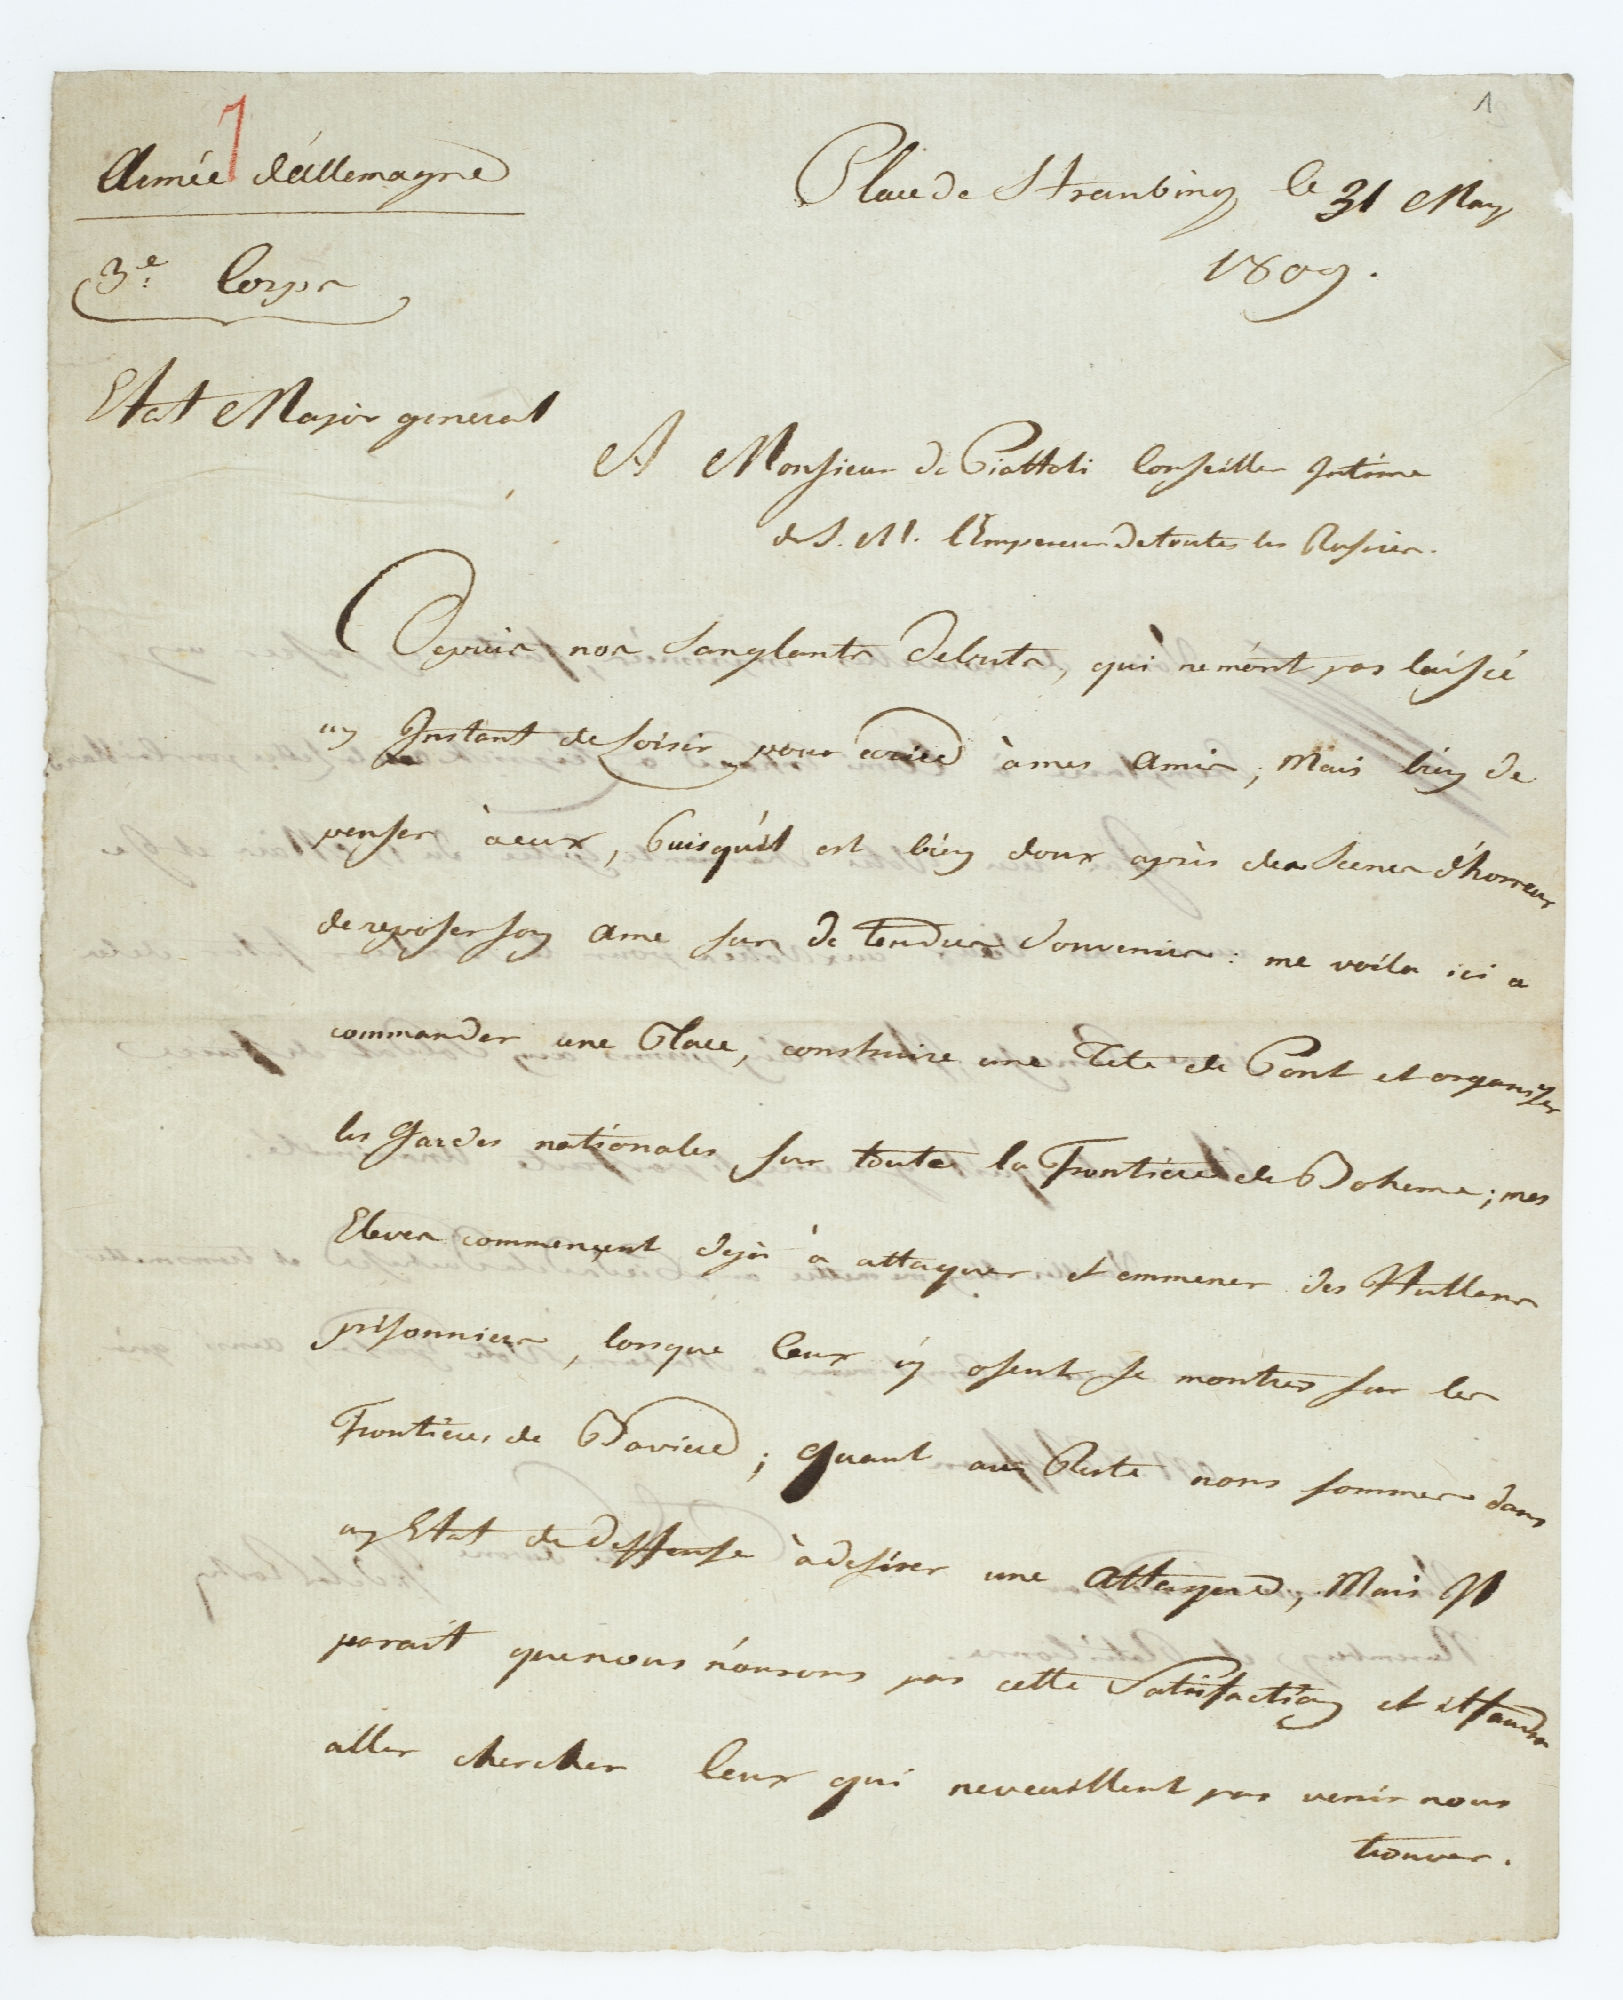 1
Armée d'Allemagne
Place de Straubing le 31 May
1809.
3e. Corps
Etat Major general
A Monsieur de Piattoli Conseiller Intime
de S. M. l'Empereur de toutes les Russies.
Depuis nos Sanglants debuts, qui ne m'ont pas laissé
un Instant de loisir pour ecrire à mes Amis, Mais bien de
penser à eux, Puisqu'il est bien doux après des Scenes d'horreur
de reposer son ame sur de tendres Souvenirs: me voila ici a
commander une Place, construire une Tete de Pont et organizer
les Gardes nationales sur toute la Frontiere de Boheme; mes
Eleves commencent deja à attaquer et emmener des Hullans
prisonniers, lorsque Ceux cy osent se montrer sur les
Frontieres de Baviere; quant au Reste nous sommes dans
un Etat de deffense à desirer une Attaque, Mais Il
parait que nous n'aurons pas cette Satisfaction et il faudra
aller chercher Ceux qui ne veuillent pas venir nous
trouver.